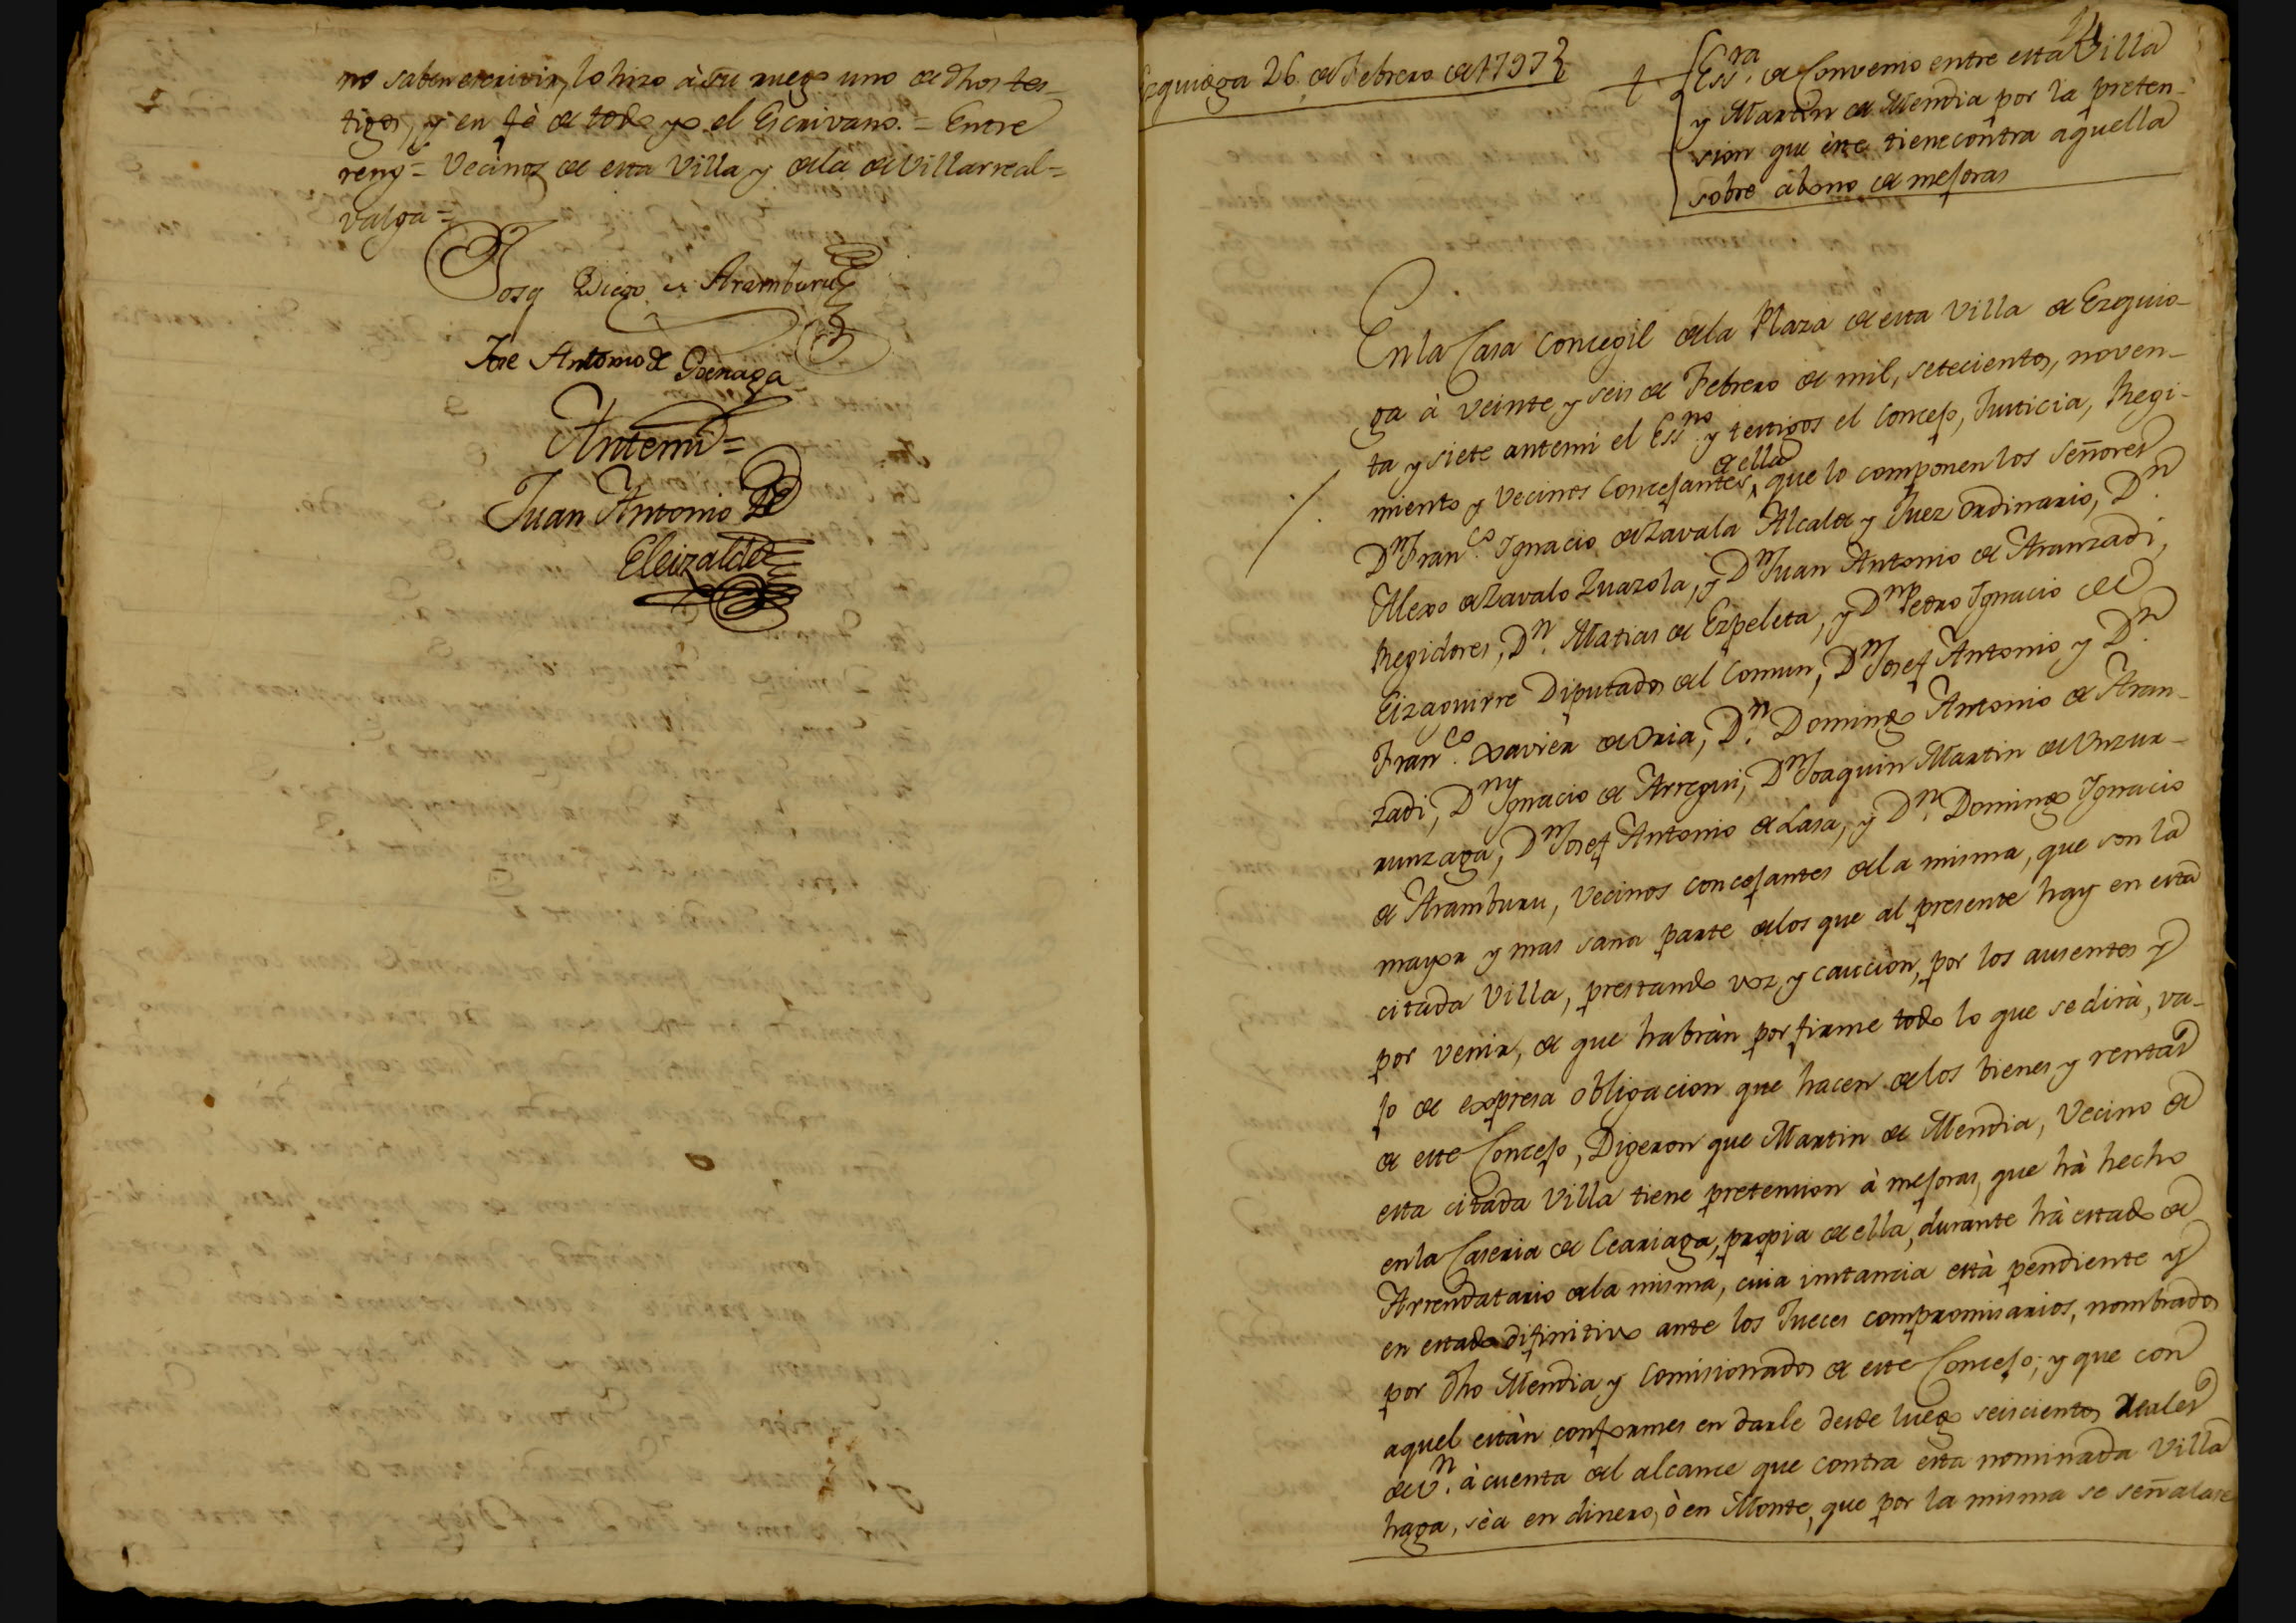 no saben escrivir, lo hizo à su ruego uno de dhos tes-
tigos, y en fè de todo yo el Escrivano. = Entre
reng.s = Vecinos de esta Villa, y de la de Villarreal =
valga =
Josef Diego de Aramburu
Jose Antonio de Goenaga
Antemi =
Juan Antonio de
Eleizalde
Ezquioga 26. de Febrero de 1797
14
Ess.ra de Convenio entre esta Villa
y Martin de Mendia por la preten-
sion que èste tiene contra aquella
sobre abono de mejoras
En la Casa Concegil de la Plaza de esta Villa de Ezquio-
ga à veinte y seis de Febrero de mil, setecientos, noven-
ta y siete antemi el Ess.no y testigos el Concejo, Justicia, Regi-
miento y Vecinos Concejantes de ella, que lo componen los señores
D.n Fran.co Ignacio de Zavala Alcalde y Juez Ordinario, D.n
Alexo de Zavalo Zuazola, y D.n Juan Antonio de Aranzadi,
Regidores, D.n Matias de Ezpeleta, y D.n Pedro Ignacio de
Eizaguirre Diputados del Comun, D.n Josef Antonio y D.n
Fran.co Xavièr de Oria, D.n Domingo Antonio de Aran-
zadi, D.n Ygnacio de Arregui, D.n Joaquin Martin de Unzur-
runzaga, D.n Josef Antonio de Lasa, y D.n Domingo Ignacio
de Aramburu, Vecinos concejantes de la misma, que son la
mayor y mas sana parte de los que al presente hay en esta
citada Villa, prestando voz, y caucion, por los ausentes y
por venir, de que habràn por firme todo lo que se dirà, va-
jo de expresa obligacion que hacen de los bienes y rentas
de este Concejo, Digeron que Martin de Mendia, Vecino de
esta citada Villa tiene pretension à mejoras, que hà hecho
en la Caseria de Ceariaga, propia de ella, durante hà estado de
Arrendatario de la misma, cuia instancia està pendiente y
en estado difinitivo ante los Jueces compromisarios, nombrados
por dho Mendia y Comisionados de este Concejo; y que con
aquel estàn conformes en darle desde luego seiscientos reales
de v.n à cuenta del alcance que contra esta nominada Villa
haga, sèa en dinero, ò en Monte, que por la misma se señalase